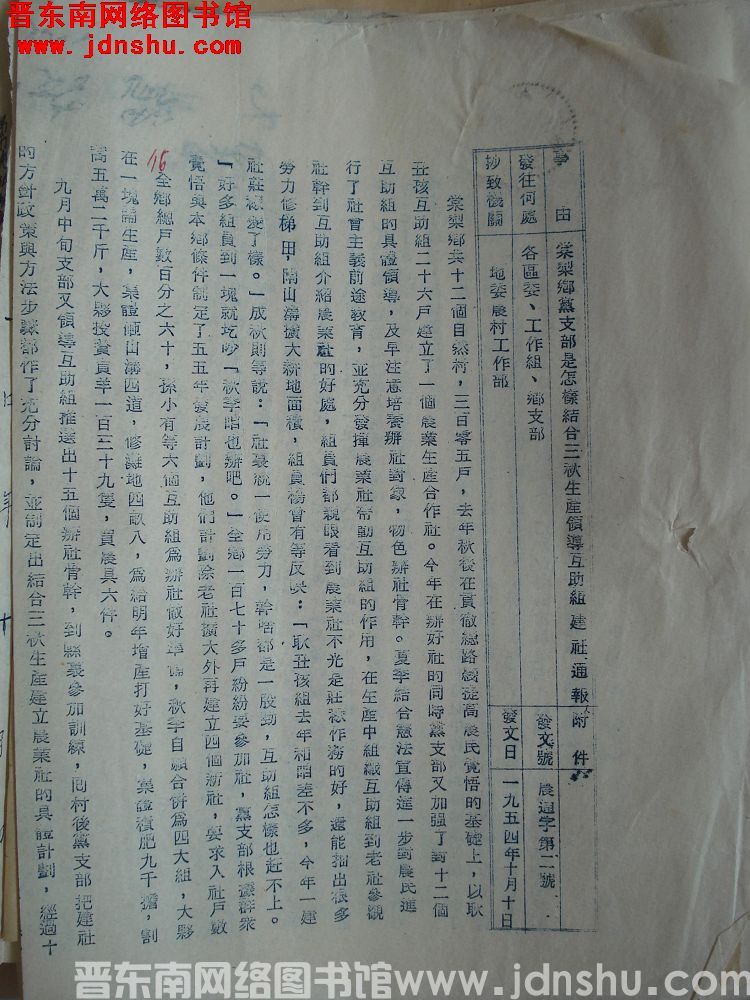 晋东南网络图书馆
www.jdnshu.com
事由
棠梨鄉黨支部是怎樣結合三秋生產領導互助組建社通報
附件
發往何處
各區委、工作組、鄉支部
發文號
農通字第二號
抄致機關
地委農村工作部
發文日
一九五四年十月十日
棠梨鄉共十二個自然村，三百零五戶，去年秋後在貫徹總路綫提高農民覺悟的基礎上，以耿
丑孩互助組二十六戶建立了一個農業生產合作社。今年在辦好社的同時黨支部又加強了對十二個
互助組的具體領導，及早注意培養辦社對象，物色辦社骨幹。夏季結合憲法宣傳進一步對農民進
行了社會主義前途教育，並充分發揮農業社帶動互助組的作用，在生產中組織互助組到老社參觀
社幹到互助組介紹農業社的好處，組員們都親眼看到農業社不光是莊稼作務的好，還能抽出很多
勞力修梯田，閘山溝擴大耕地面積，組員楊會有等反映：「耿丑孩組去年和咱差不多，今年一建
社莊稼變了樣。」成秋則等說：「社裏統一使用勞力，幹啥都是一股勁，互助組怎樣也赶不上。
「好多組員到一塊就圪吵「秋季咱也辦吧。」全鄉一百七十多戶紛紛要參加社，黨支部根據群衆
覺悟與本鄉條件制定了五五年發展計劃，他們計劃除老社擴大外再建立四個新社，要求入社戶數
16
全鄉總戶數百分之六十，孫小有等六個互助組爲辦社做好準備，秋季自願合併爲四大組，大夥
在一塊鬧生產，集體閘山溝四道，修灘地四畝八，爲給明年增產打好基礎，集體積肥九千擔，割
蒿五萬二千斤，大夥投資買羊一百三十九隻，買農具六件。
九月中旬支部又領導互助組推選出十五個辦社骨幹，到縣裏參加訓練，回村後黨支部把建社
的方針政策與方法步驟都作了充分討論，並制定出結合三秋生產建立農業社的具體計劃，經過十
晋东南网络图书馆www.jdnshu.com